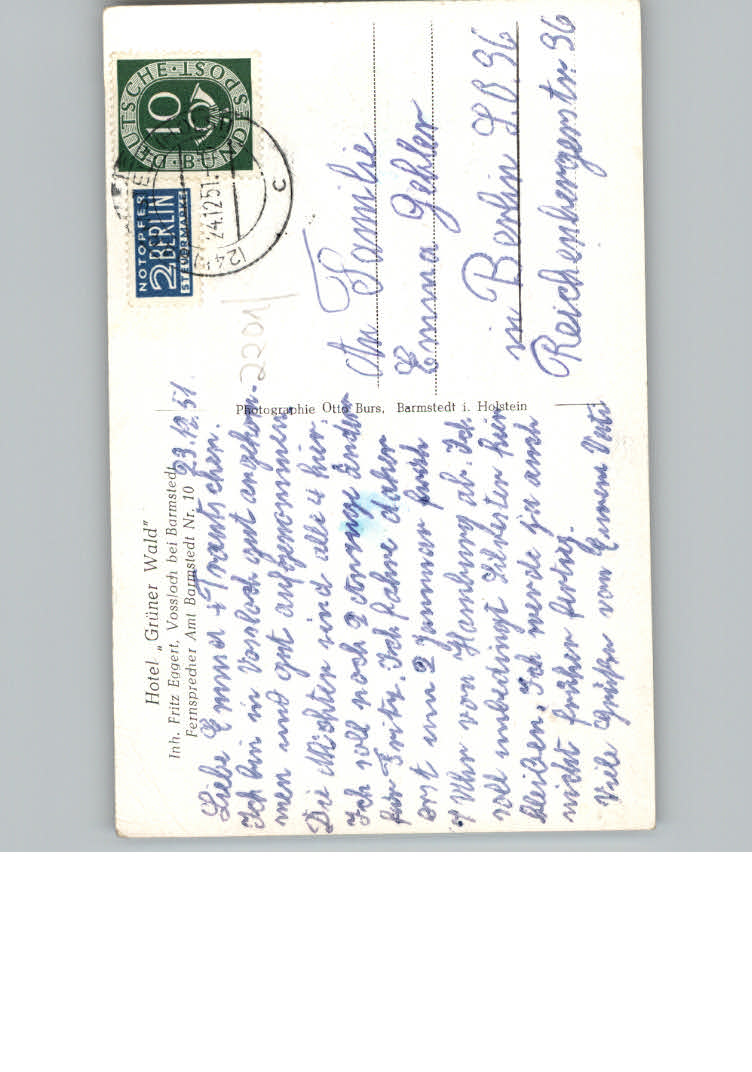 Hotel „Grüner Wald"
Inh. Fritz Eggert, Vossloch bei Barmstedt
Fernsprecher Amt Barmstedt Nr. 10
23.12.51.
Liebe Emma + Trautchen.
Ich bin in Vossloch gut angekom-
men und gut aufgenommen
Die Nichten sind alle 4 hier.
Ich soll noch 2 Anzüge ändern
für Fritz. Ich fahre daher
erst am 2 Januar früh
Uhr von Hamburg ab. Ich
soll unbedingt Silvester hier
bleiben. Ich werde ja auch
nicht früher fertig.
Viele Grüße von Eurem Vati
Photographie Otto Burs, Barmstedt i. Holstein
2201/
NOTOPFER
2 BERLIN
STEUERMARKE
DEUTSCHE BUNDESPOST
10
24.12.51
c
An Familie
Emma Gehler
in Berlin S.O 36
Reichenbergerstr. 36